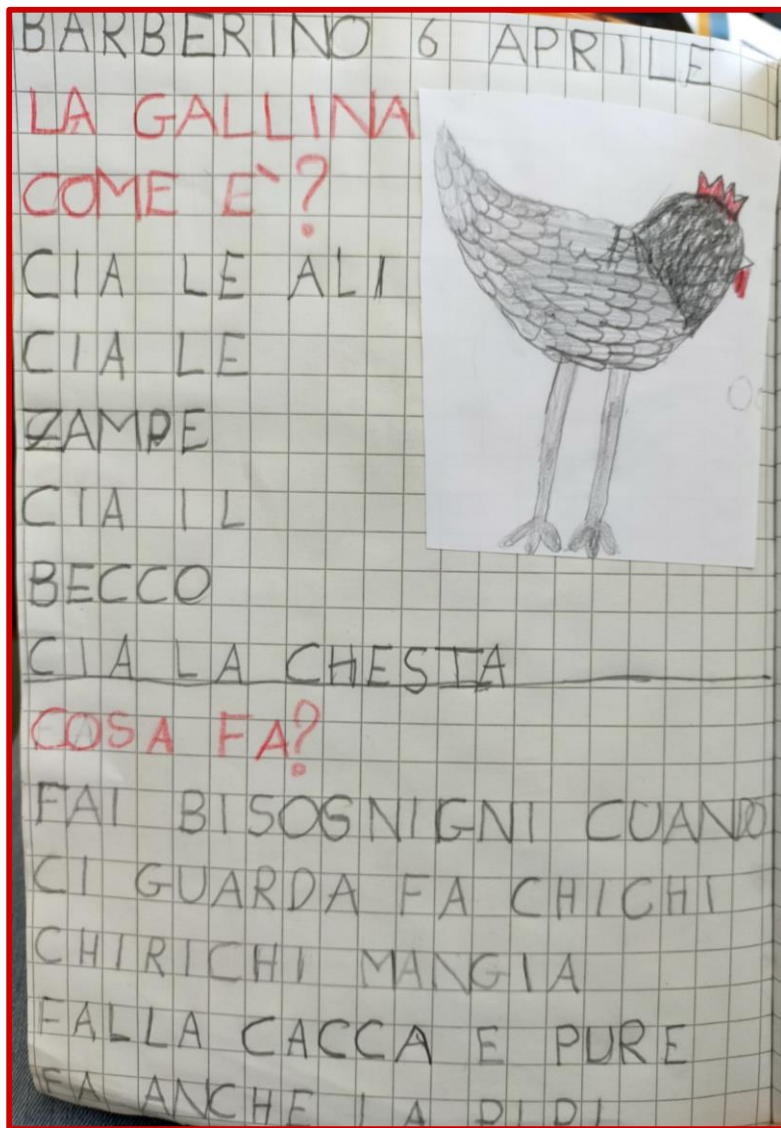 BARBERINO 6 APRILE
LA GALLINA
COME E`?
CIA LE ALI
CIA LE
ZAMPE
CIA IL
BECCO
CIA LA CHESTA
COSA FA?
FAI BISOGNIGNI CUANDO
CI GUARDA FA CHICHI
CHIRICHI MANGIA
FALLA CACCA E PURE
FA ANCHE LA PIPI